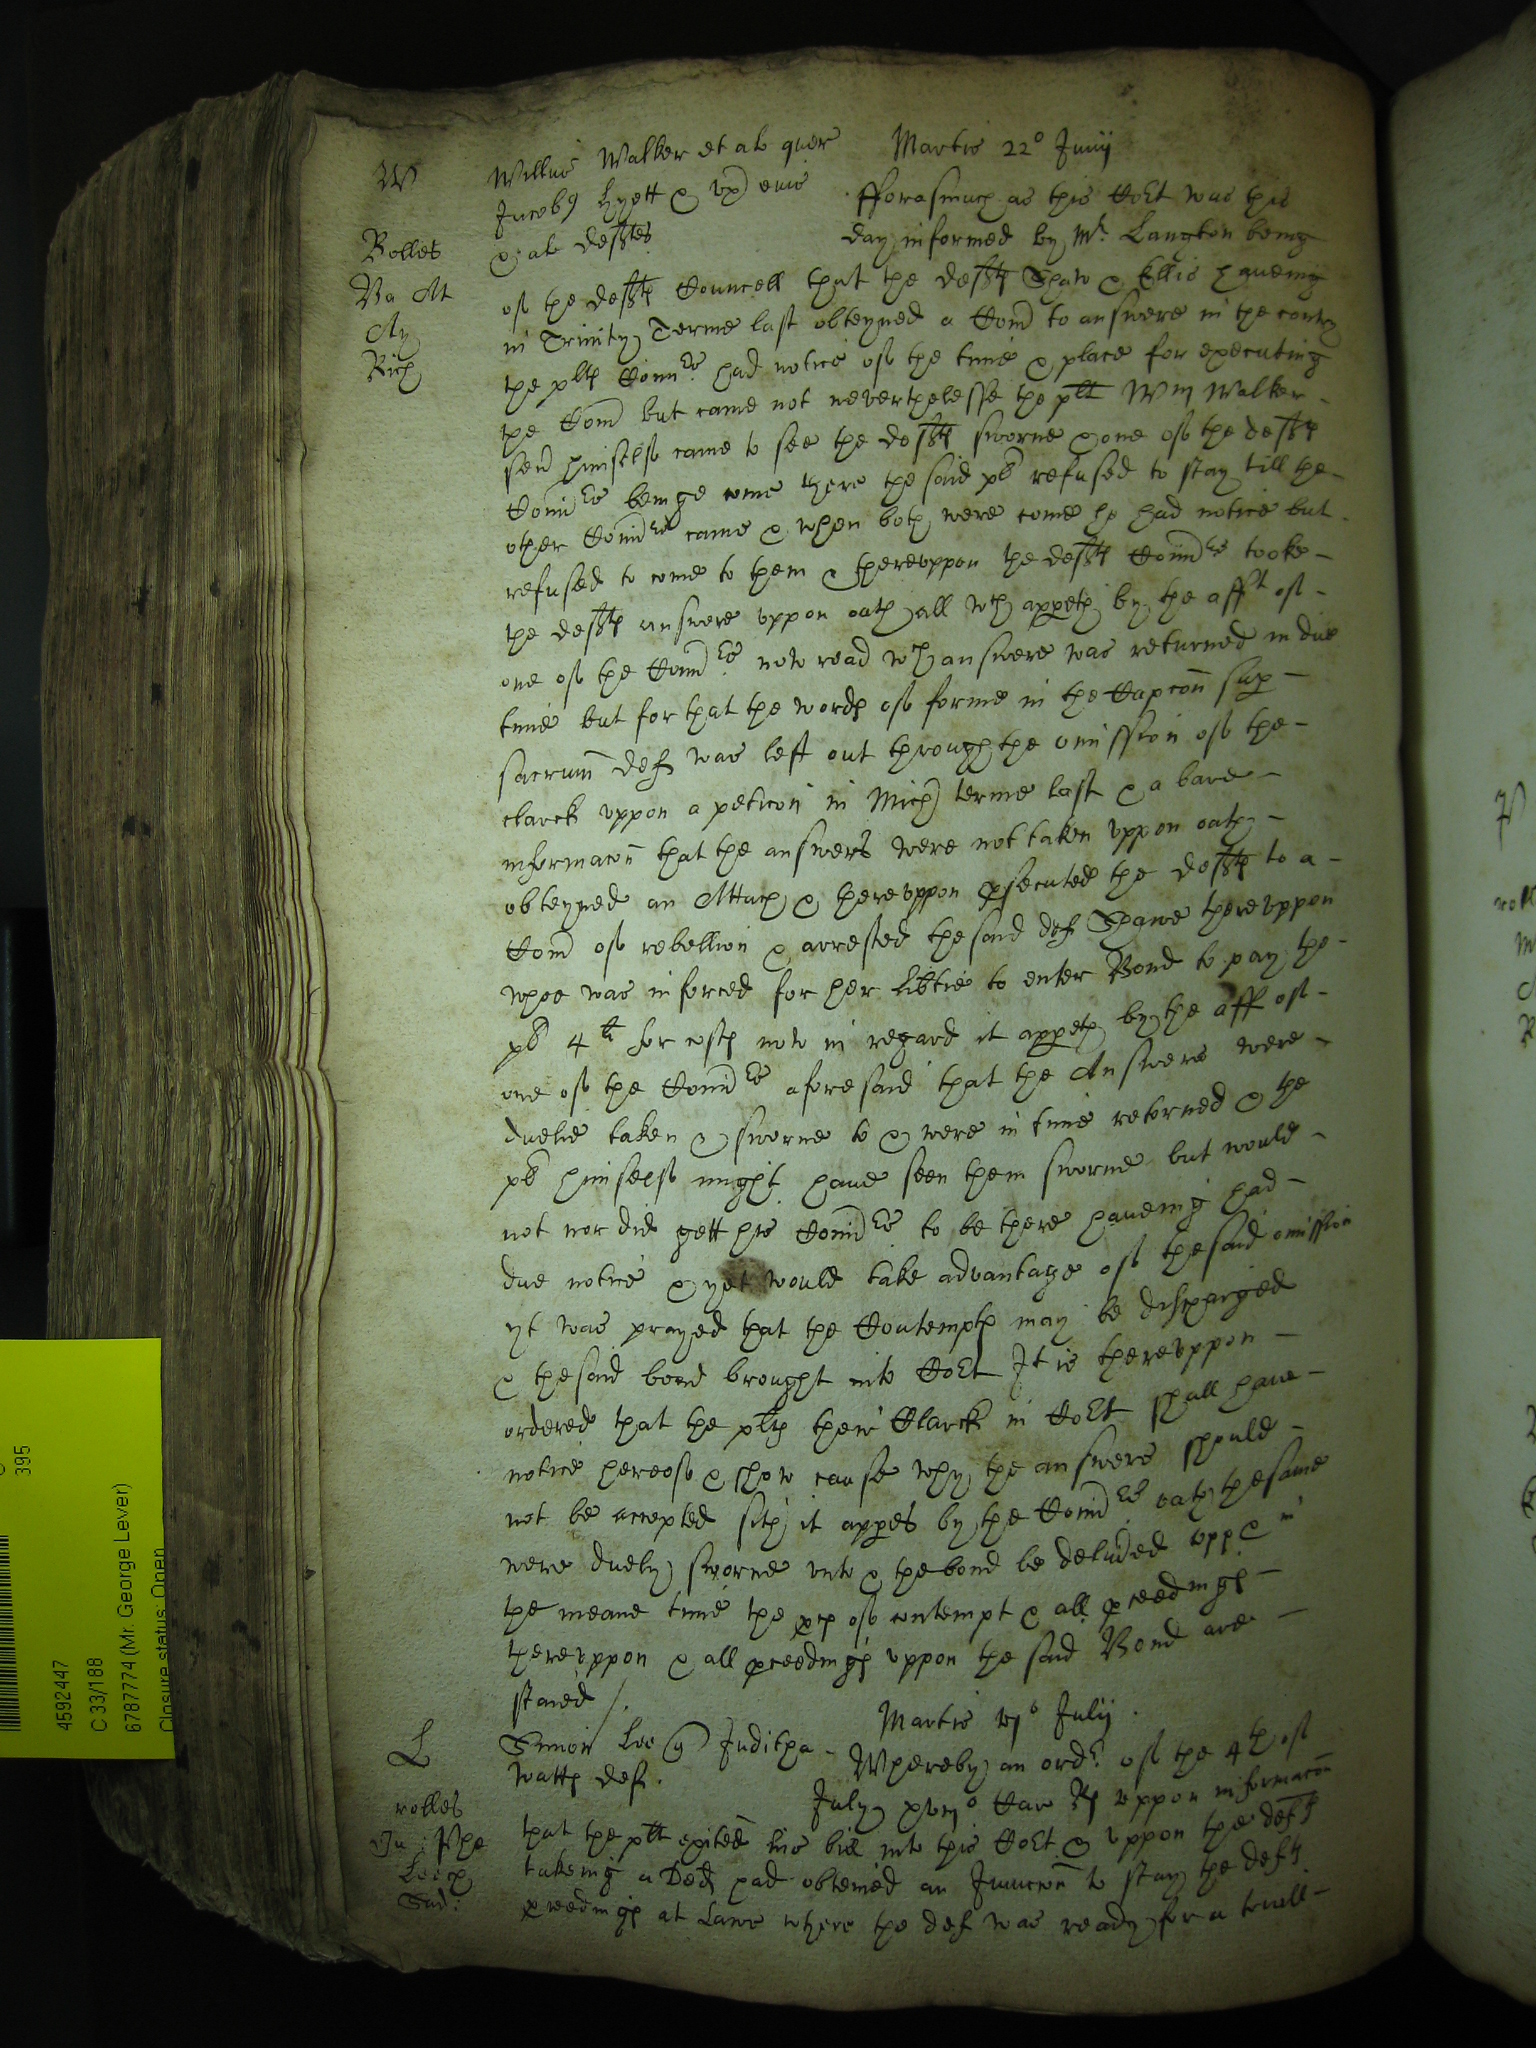 W
Willms Walker et al quer
Martis 22o Junij
Jacobus Hyett & ux eius
& al deftes
fforasmuch as this Cort was this
day informed by Mr. Langton being
Rolles
Va At
Ay
Rich
of the defts Councell that the defts Shaw & Ellis haueing
in Trinity Terme last obteyned a Com to answere in the contry
the plts Comrs had notice of the time & place for executing
the Com but came not neverthelesse the plt Wm Walker
sen himselfe came to see the defts sworne & one of the defts
Comrs beinge come there the said pl refused to stay till the
other Comrs came & when both were come he had notice but
refused to come to them & thereuppon the defts Comrs tooke
the defts answere uppon oath all wch appeth by the afft of
one of the Comrs now read wch answere was returned in due
time but for that the words of forme in the Capcon sup
sacrum def was left out through the omission of the
clarck uppon a peticon in Mich terme last & a bare
informacon that the answers were not taken uppon oath
obteyned an Attach & hereuppon psecuted the defts to a
Com of rebellion & arrested the said def Shawe thereuppon
whoe was inforced for her libtie to enter Bond to pay the
pl 4li for costs now in regard it appeth by the aff of
one of the Comrs aforesaid that the Answers were
duelie taken & sworne to & were in time retorned & the
pl himselfe might haue seen them sworne but would
not nor did gett his Comrs to be there haueing had
due notice & yet would take advantage of the said omission
yt was prayed that the Contempts may be discharged
& the said bond brought into Cort It is thereuppon
ordered that the plts their Clarck in Cort shall haue
notice hereof & shew cause why the answers should
not be accepted sith it appes by the Comrs oath the same
were duely sworne unto & the bond be deliued upp & in
the meane time the pces of contempt & all pceedings
thereuppon & all pceedings uppon the said Bond are
staied
Martis vjo Julij
L
Simon Lee q Juditha
Watts def.
Whereby an ordr. of the 4th of
July xvijo Car Rs uppon informacon
rolles
Leech
Sad:
that the plt exited his bill into this Cort & uppon the defts
takeing a Ded had obteined an Iniuncion to stay the defts
pceedings at Lawe where the def was ready for a triall